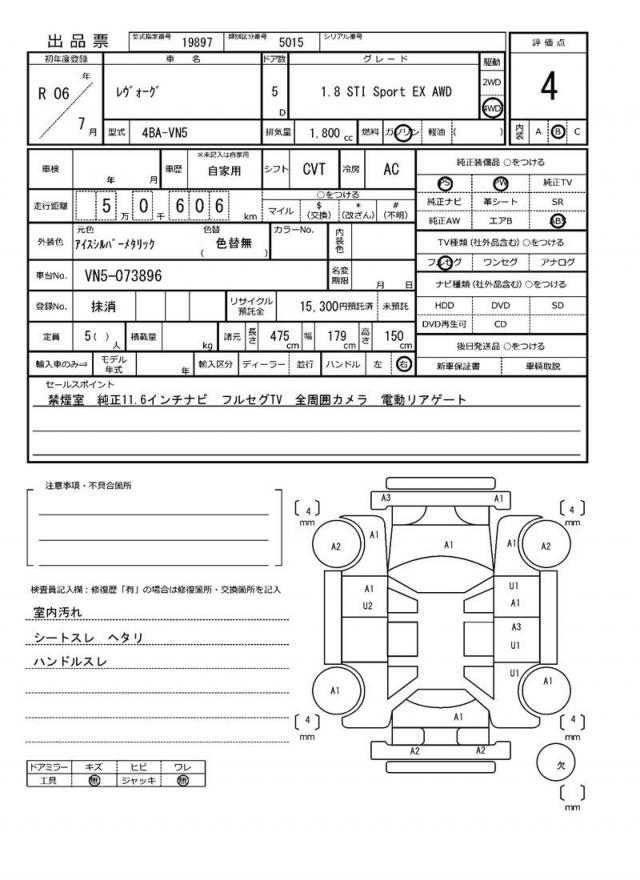 出品票 型式指定番号 19897 類別区分番号 5015 シリアル番号
評価点
4
内装 A B C
初年度登録 車名 ドア数 グレード 駆動
R 06 年 7 月
レヴォーグ 5 D 1.8 STI Sport EX AWD
2WD
4WD
型式 4BA-VN5 排気量 1.800 cc 燃料 ガソリン 軽油 ( )
車検 年 月 車歴 ※未記入は自家用 自家用 シフト CVT 冷房 AC
走行距離 5 万 0 千 6 0 6 km
○をつける
マイル $ (交換) * (改ざん) # (不明)
外装色 元色 アイスシルバーメタリック 色替 ( 色替無 ) カラーNo. 内装色
車台No. VN5-073896 名変期限 月 日
登録No. 抹消 リサイクル預託金 15,300円預託済 未預託
定員 5( ) 人 積載量 kg 諸元 長さ 475 cm 幅 179 cm 高さ 150 cm
輸入車のみ⇒ モデル年式 年 輸入区分 ディーラー 並行 ハンドル 左 右
純正装備品 ○をつける
PS PW 純正TV
純正ナビ 革シート SR
純正AW エアB ABS
TV種類(社外品含む)○をつける
フルセグ ワンセグ アナログ
ナビ種類(社外品含む)○をつける
HDD DVD SD
DVD再生可 CD
後日発送品 ○をつける
新車保証書 車輌取説
セールスポイント
禁煙室 純正11.6インチナビ フルセグTV 全周囲カメラ 電動リアゲート
注意事項・不具合箇所
検査員記入欄:修復歴「有」の場合は修復箇所・交換箇所を記入
室内汚れ
シートスレ ヘタリ
ハンドルスレ
ドアミラー キズ ヒビ ワレ
工具 無 ジャッキ 無
A3 A1
[ 4 ] mm [ 4 ] mm
A2 A1 A1 A1 A2
A1 U1
U2 A1
A3
U1
U1
A1 A1
A1
[ 4 ] mm [ 4 ] mm
A2 A2
欠
[ ] mm